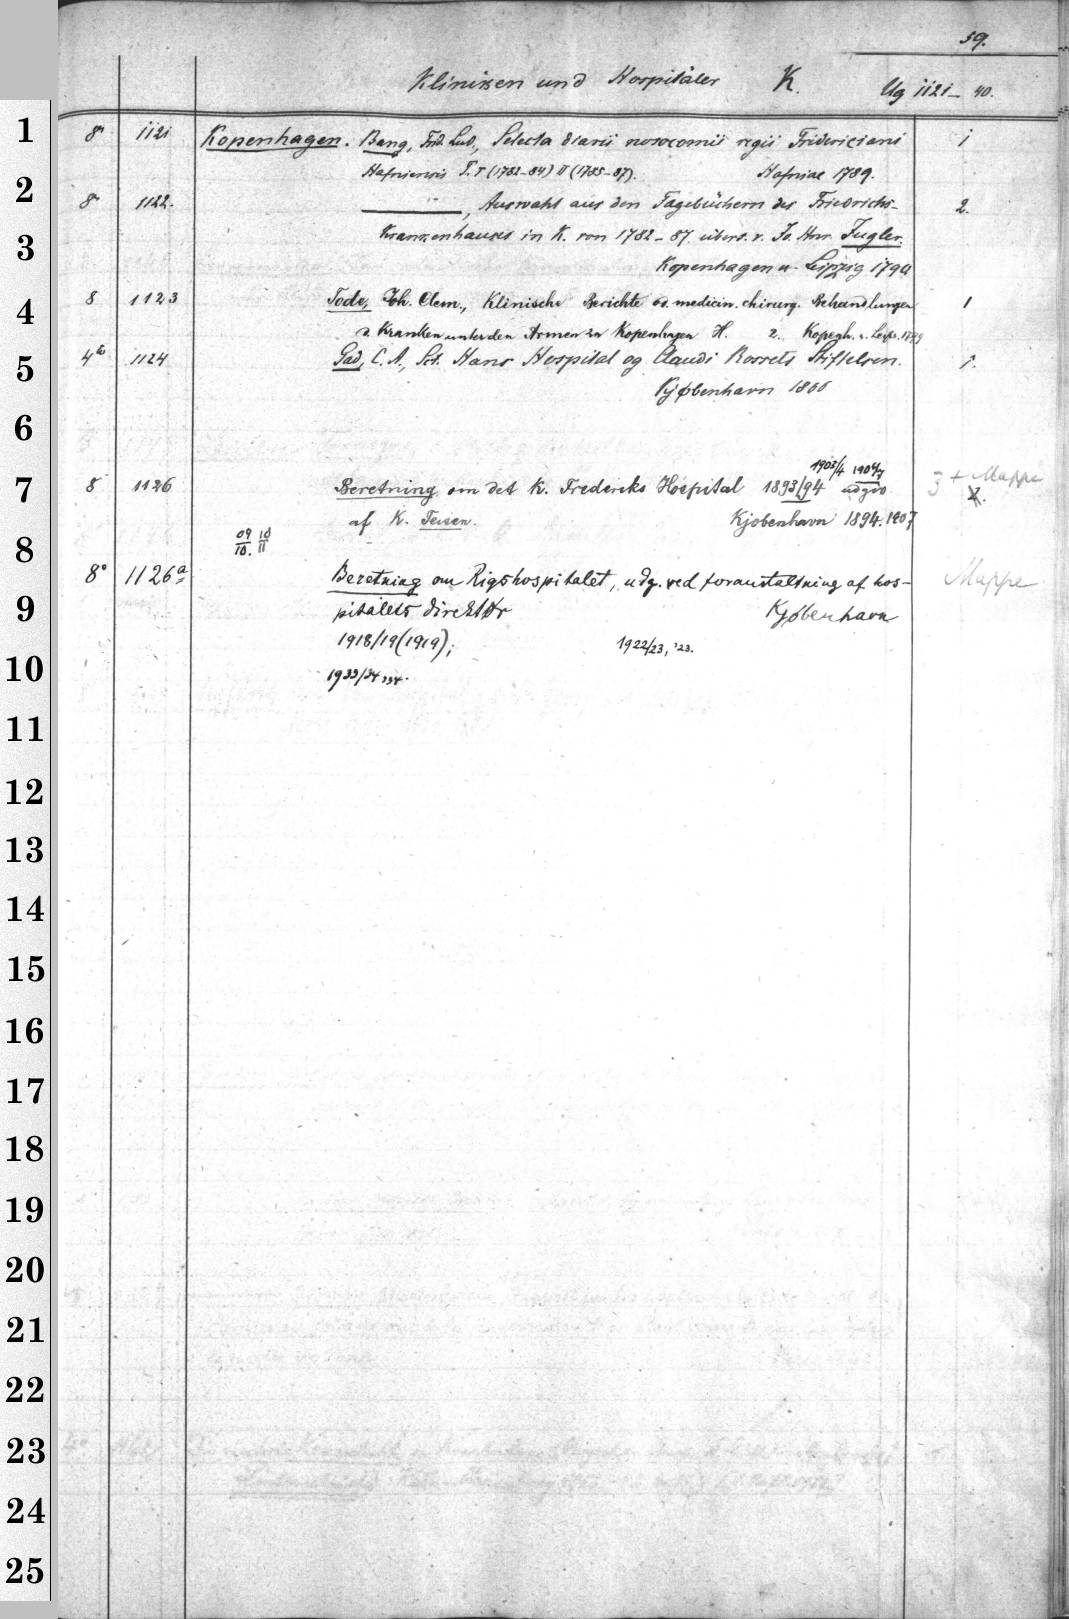 59.
Kliniken und Hospitäler K. Ug 1121-40.
1
8° 1121 Kopenhagen. Bang, Frid. Lud., Selecta diarii nosocomii regii Fridericiani 1
Hafniensis T. I (1782-84) II (1785-87). Hafniae 1789.
2
8° 1122. ———, Auswahl aus den Tagebüchern des Friedrichs- 2.
3
Krankenhauses in K. von 1782-87 übers. v. Jo. Hnr. Jugler.
Kopenhagen u. Leipzig 1790
4
8 1123 Tode, Joh. Clem., Klinische Berichte os. medicin. chirurg. Behandlungen 1
v. Kranken unter den Armen zu Kopenhagen H. 2. Kopegh. u. Leipz. 1789
5
4to 1124 Gad, C. A., Sct. Hans Hospital og Claudi Rossets Stiftelsen. 1.
Kjøbenhavn 1866
6
7
1903/4 1906/7
8 1126 Beretning om det K. Frederiks Hospital 1893/94 udgiv. 3 + Mappe
af K. Teisen. Kjøbenhavn 1894-1907
8
09/10. 10/11
8° 1126a Beretning om Rigshospitalet, udg. ved foranstaltning af hos- Mappe
9
pitalets direktør Kjøbenhavn
1918/19 (1919); 1922/23, '23.
10
1933/34, '34.
11
12
13
14
15
16
17
18
19
20
21
22
23
24
25